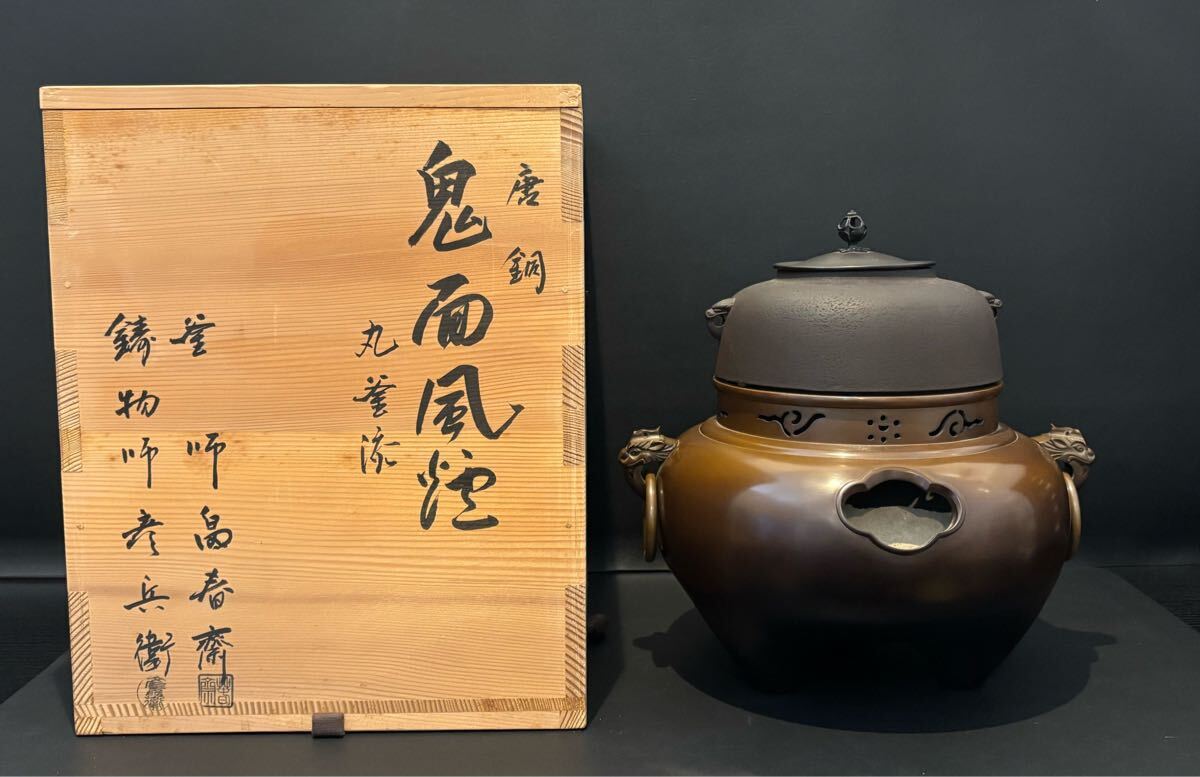 唐銅
鬼面風炉
丸釜流
釜師畠春斎
鋳物師彦兵衛